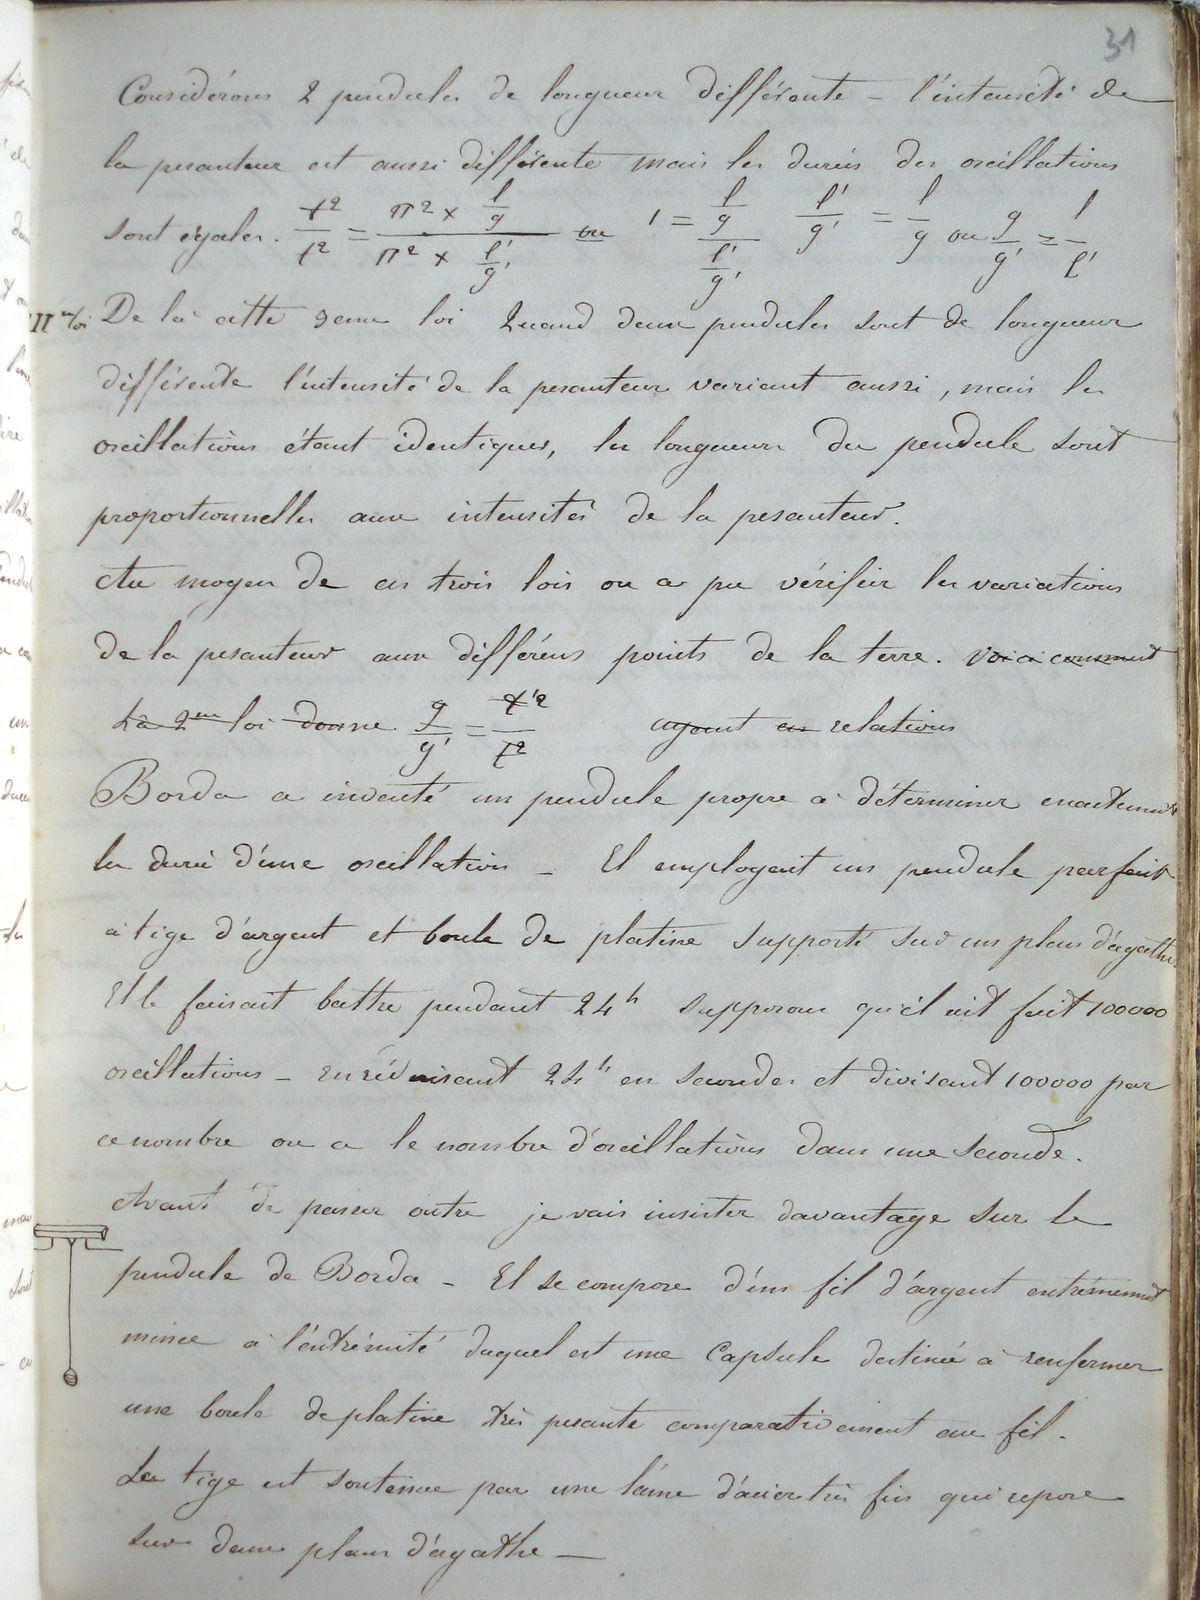 31
Considérons 2 pendules de longueur différente – l'intensité de
la pesanteur est aussi différente mais les durées des oscillations
sont égales. t²/t² = π² × l/g / π² × l'/g' ou 1 = l/g / l'/g' l'/g' = l/g ou g/g' = l/l'
De là cette 3eme loi Quand deux pendules sont de longueur
différente l'intensité de la pesanteur variant aussi, mais les
oscillations étant identiques, les longueurs du pendule sont
proportionnelles aux intensités de la pesanteur.
Au moyen de ces trois lois on a pu vérifier les variations
de la pesanteur aux différens points de la terre. Voici comment
La 2me loi donne g/g' = t'²/t² ayant ces relations
Borda a inventé un pendule propre à déterminer exactement
la durée d'une oscillation – Il employait un pendule parfait
à tige d'argent et boule de platine supporté sur un plan d'agathe.
Il le faisait battre pendant 24h supposons qu'il ait fait 100000
oscillations – en réduisant 24h en secondes et divisant 100000 par
ce nombre on a le nombre d'oscillations dans une seconde.
Avant de passer outre je vais insister davantage sur le
pendule de Borda – Il se compose d'un fil d'argent extrêmement
mince à l'extrémité duquel est une capsule destinée à renfermer
une boule de platine très pesante comparativement au fil.
La tige est soutenue par une lame d'acier très fin qui repose
sur deux plans d'agathe –